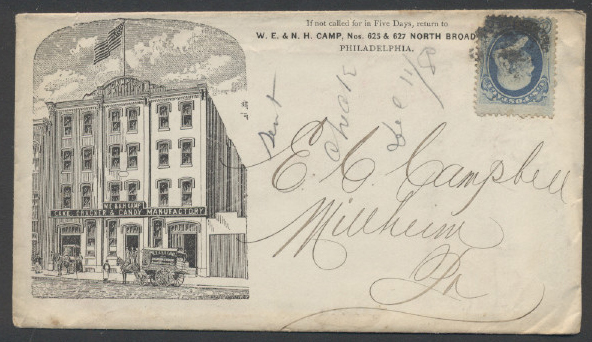 If not called for in Five Days, return to
W. E. & N. H. CAMP, Nos. 625 & 627 NORTH BROAD
PHILADELPHIA.
sent
check
Dec 11/8
E. C. Campbell
Millheim
Pa
W.E. & N.H. CAMP
CAKE, CRACKER & CANDY MANUFACTORY